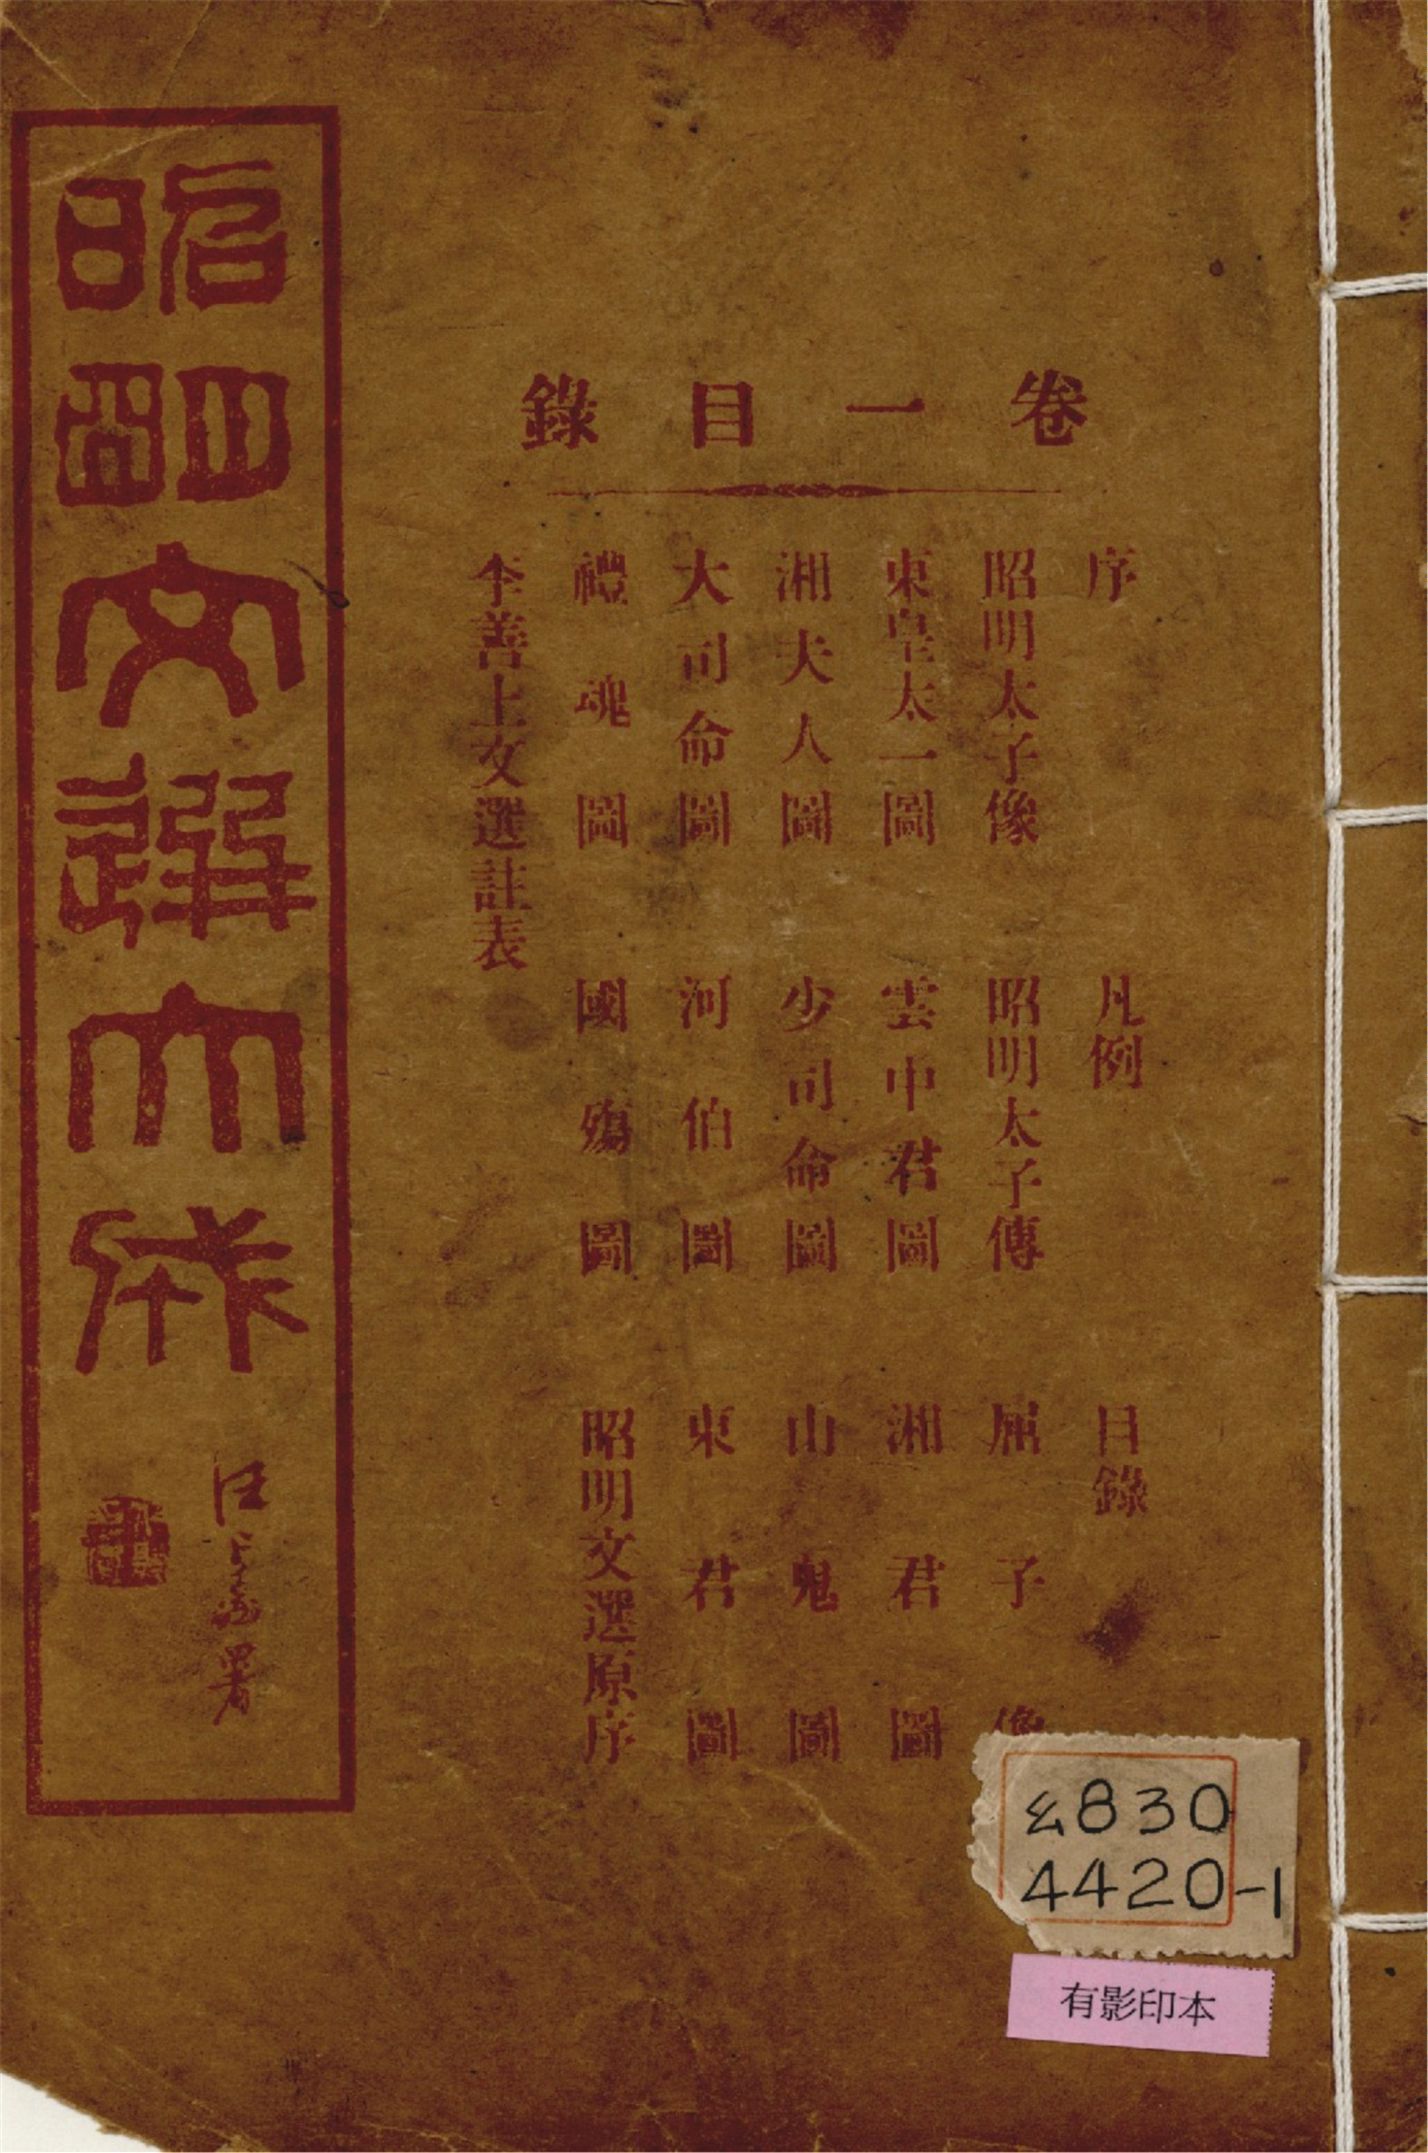 卷一目錄
序 凡例 目錄
昭明太子像 昭明太子傳 屈子像
東皇太一圖 雲中君圖 湘君圖
湘夫人圖 少司命圖 山鬼圖
大司命圖 河伯圖 東君圖
禮魂圖 國殤圖 昭明文選原序
李善上文選註表
昭明文選大成
汪 署
830
4420-1
有影印本